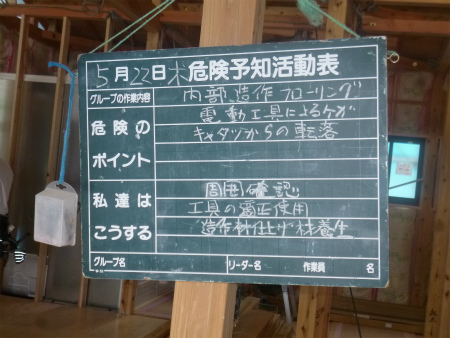 5月22日木 危険予知活動表
グループの作業内容 内部造作フローリング
危険のポイント
電動工具によるケガ
キャタツからの転落
私達はこうする
周囲確認
工具の適正使用
造作材仕上げ材養生
グループ名 リーダー名 作業員 名